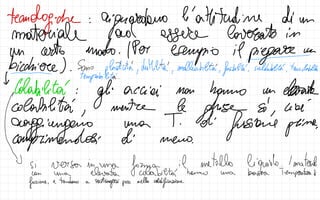 tecnologiche: riguardano l'attitudine di un
materiale ad essere lavorato in
un certo modo. (Per esempio il piegare un
bicchiere). Sono plasticità, duttilità, malleabilità, fusibilità, saldabilità,
temprabilità
Colabilità: gli acciai non hanno un elevata
colabilità, mentre le ghise sì, così
raggiungono una T. di fusione prima,
di meno.
si versa in una forma il metallo liquido, i materiali
con una elevata colabilità hanno una bassa temperatura di
fusione, e tendono a restringersi poco nella solidificazione